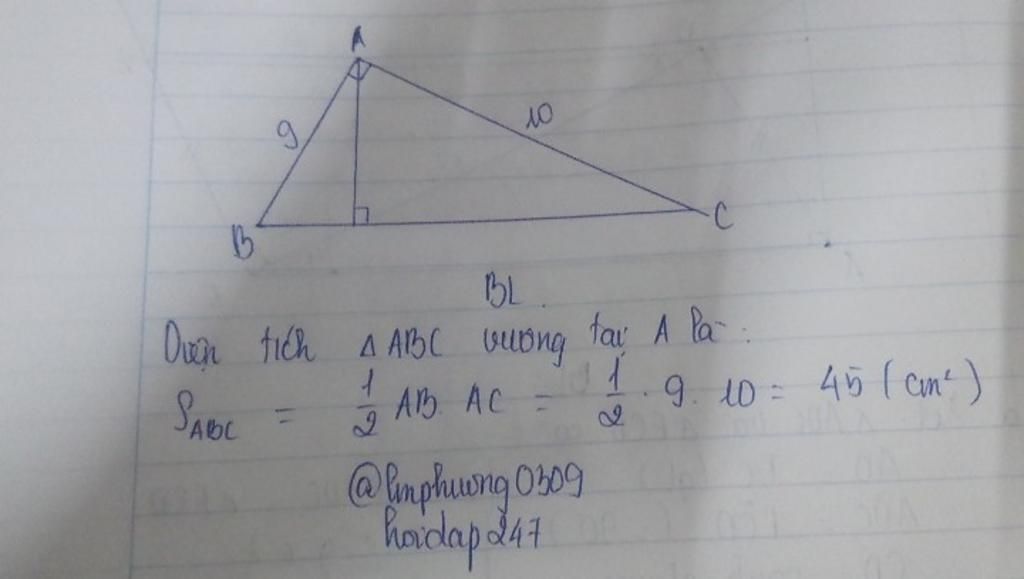 A
9
10
B
C
BL.
Diện tích △ABC vuông tại A là:
S_ABC = 1/2 AB. AC = 1/2 . 9. 10 = 45 (cm²)
@lmphuong0309
hoidap247